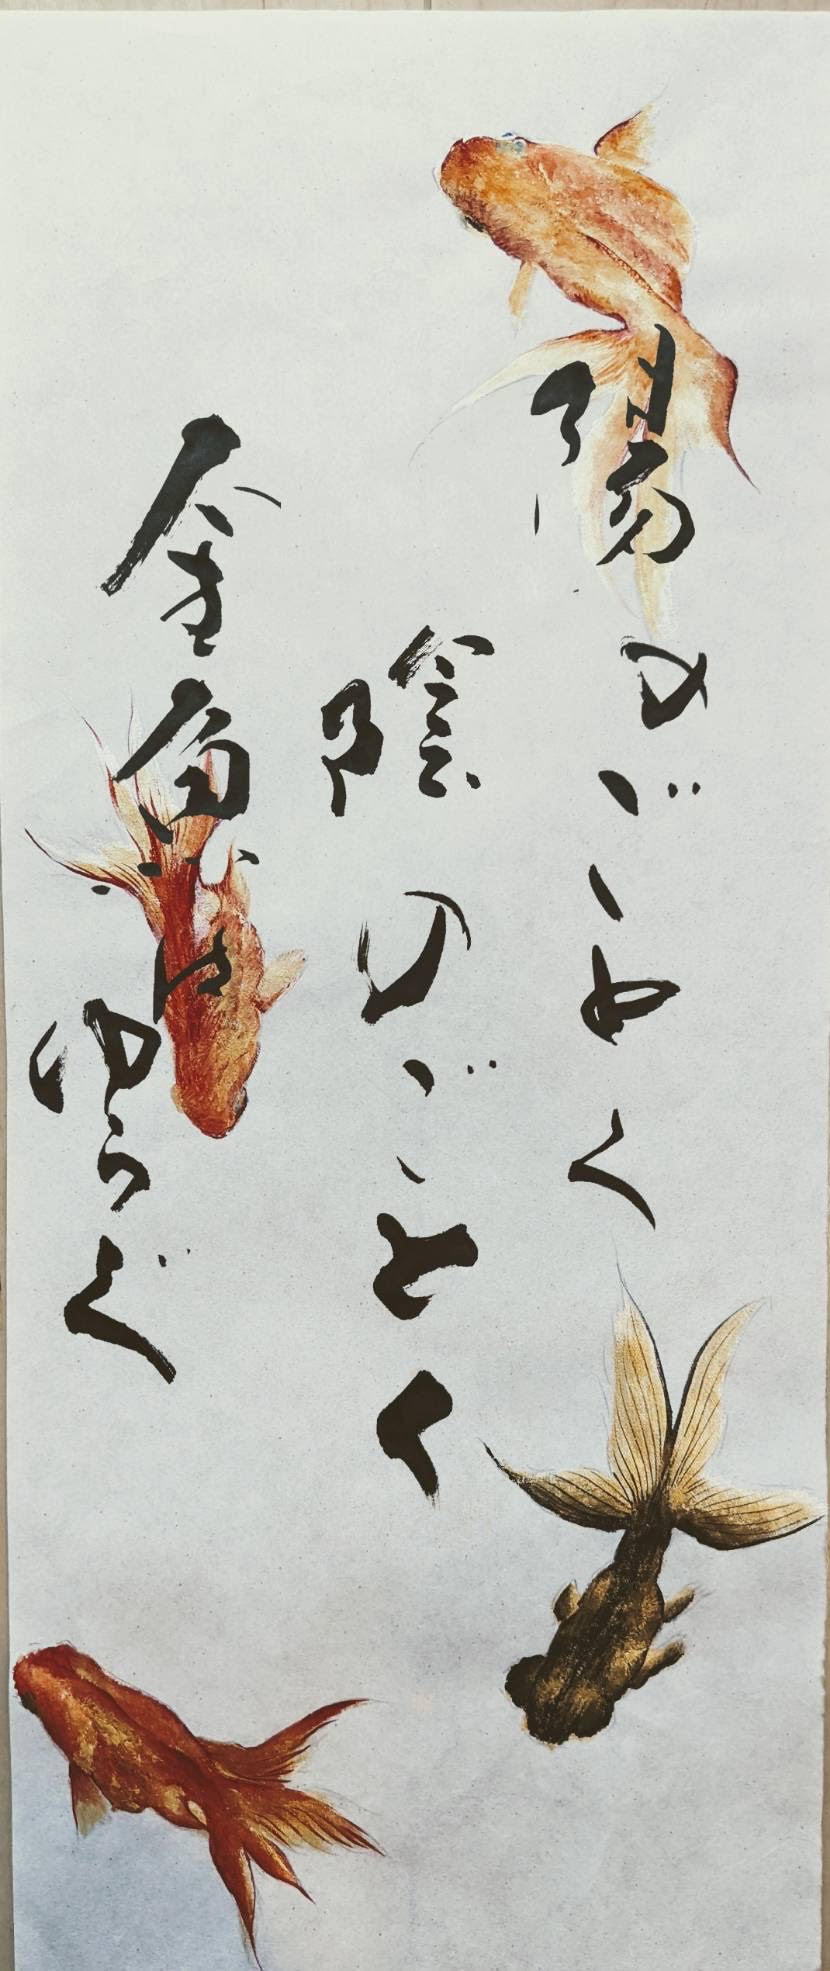 陽のごとく
陰のごとく
金魚はゆらぐ